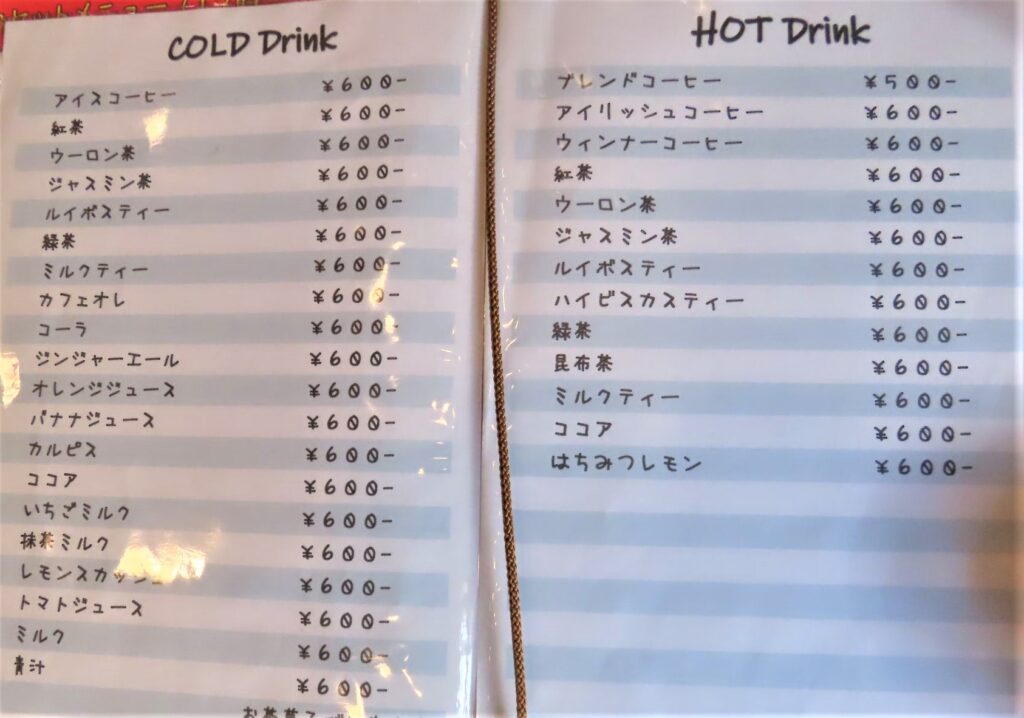 COLD Drink
アイスコーヒー ¥600-
紅茶 ¥600-
ウーロン茶 ¥600-
ジャスミン茶 ¥600-
ルイボスティー ¥600-
緑茶 ¥600-
ミルクティー ¥600-
カフェオレ ¥600-
コーラ ¥600-
ジンジャーエール ¥600-
オレンジジュース ¥600-
バナナジュース ¥600-
カルピス ¥600-
ココア ¥600-
いちごミルク ¥600-
抹茶ミルク ¥600-
レモンスカッシュ ¥600-
トマトジュース ¥600-
ミルク ¥600-
青汁 ¥600-
HOT Drink
ブレンドコーヒー ¥500-
アイリッシュコーヒー ¥600-
ウィンナーコーヒー ¥600-
紅茶 ¥600-
ウーロン茶 ¥600-
ジャスミン茶 ¥600-
ルイボスティー ¥600-
ハイビスカスティー ¥600-
緑茶 ¥600-
昆布茶 ¥600-
ミルクティー ¥600-
ココア ¥600-
はちみつレモン ¥600-